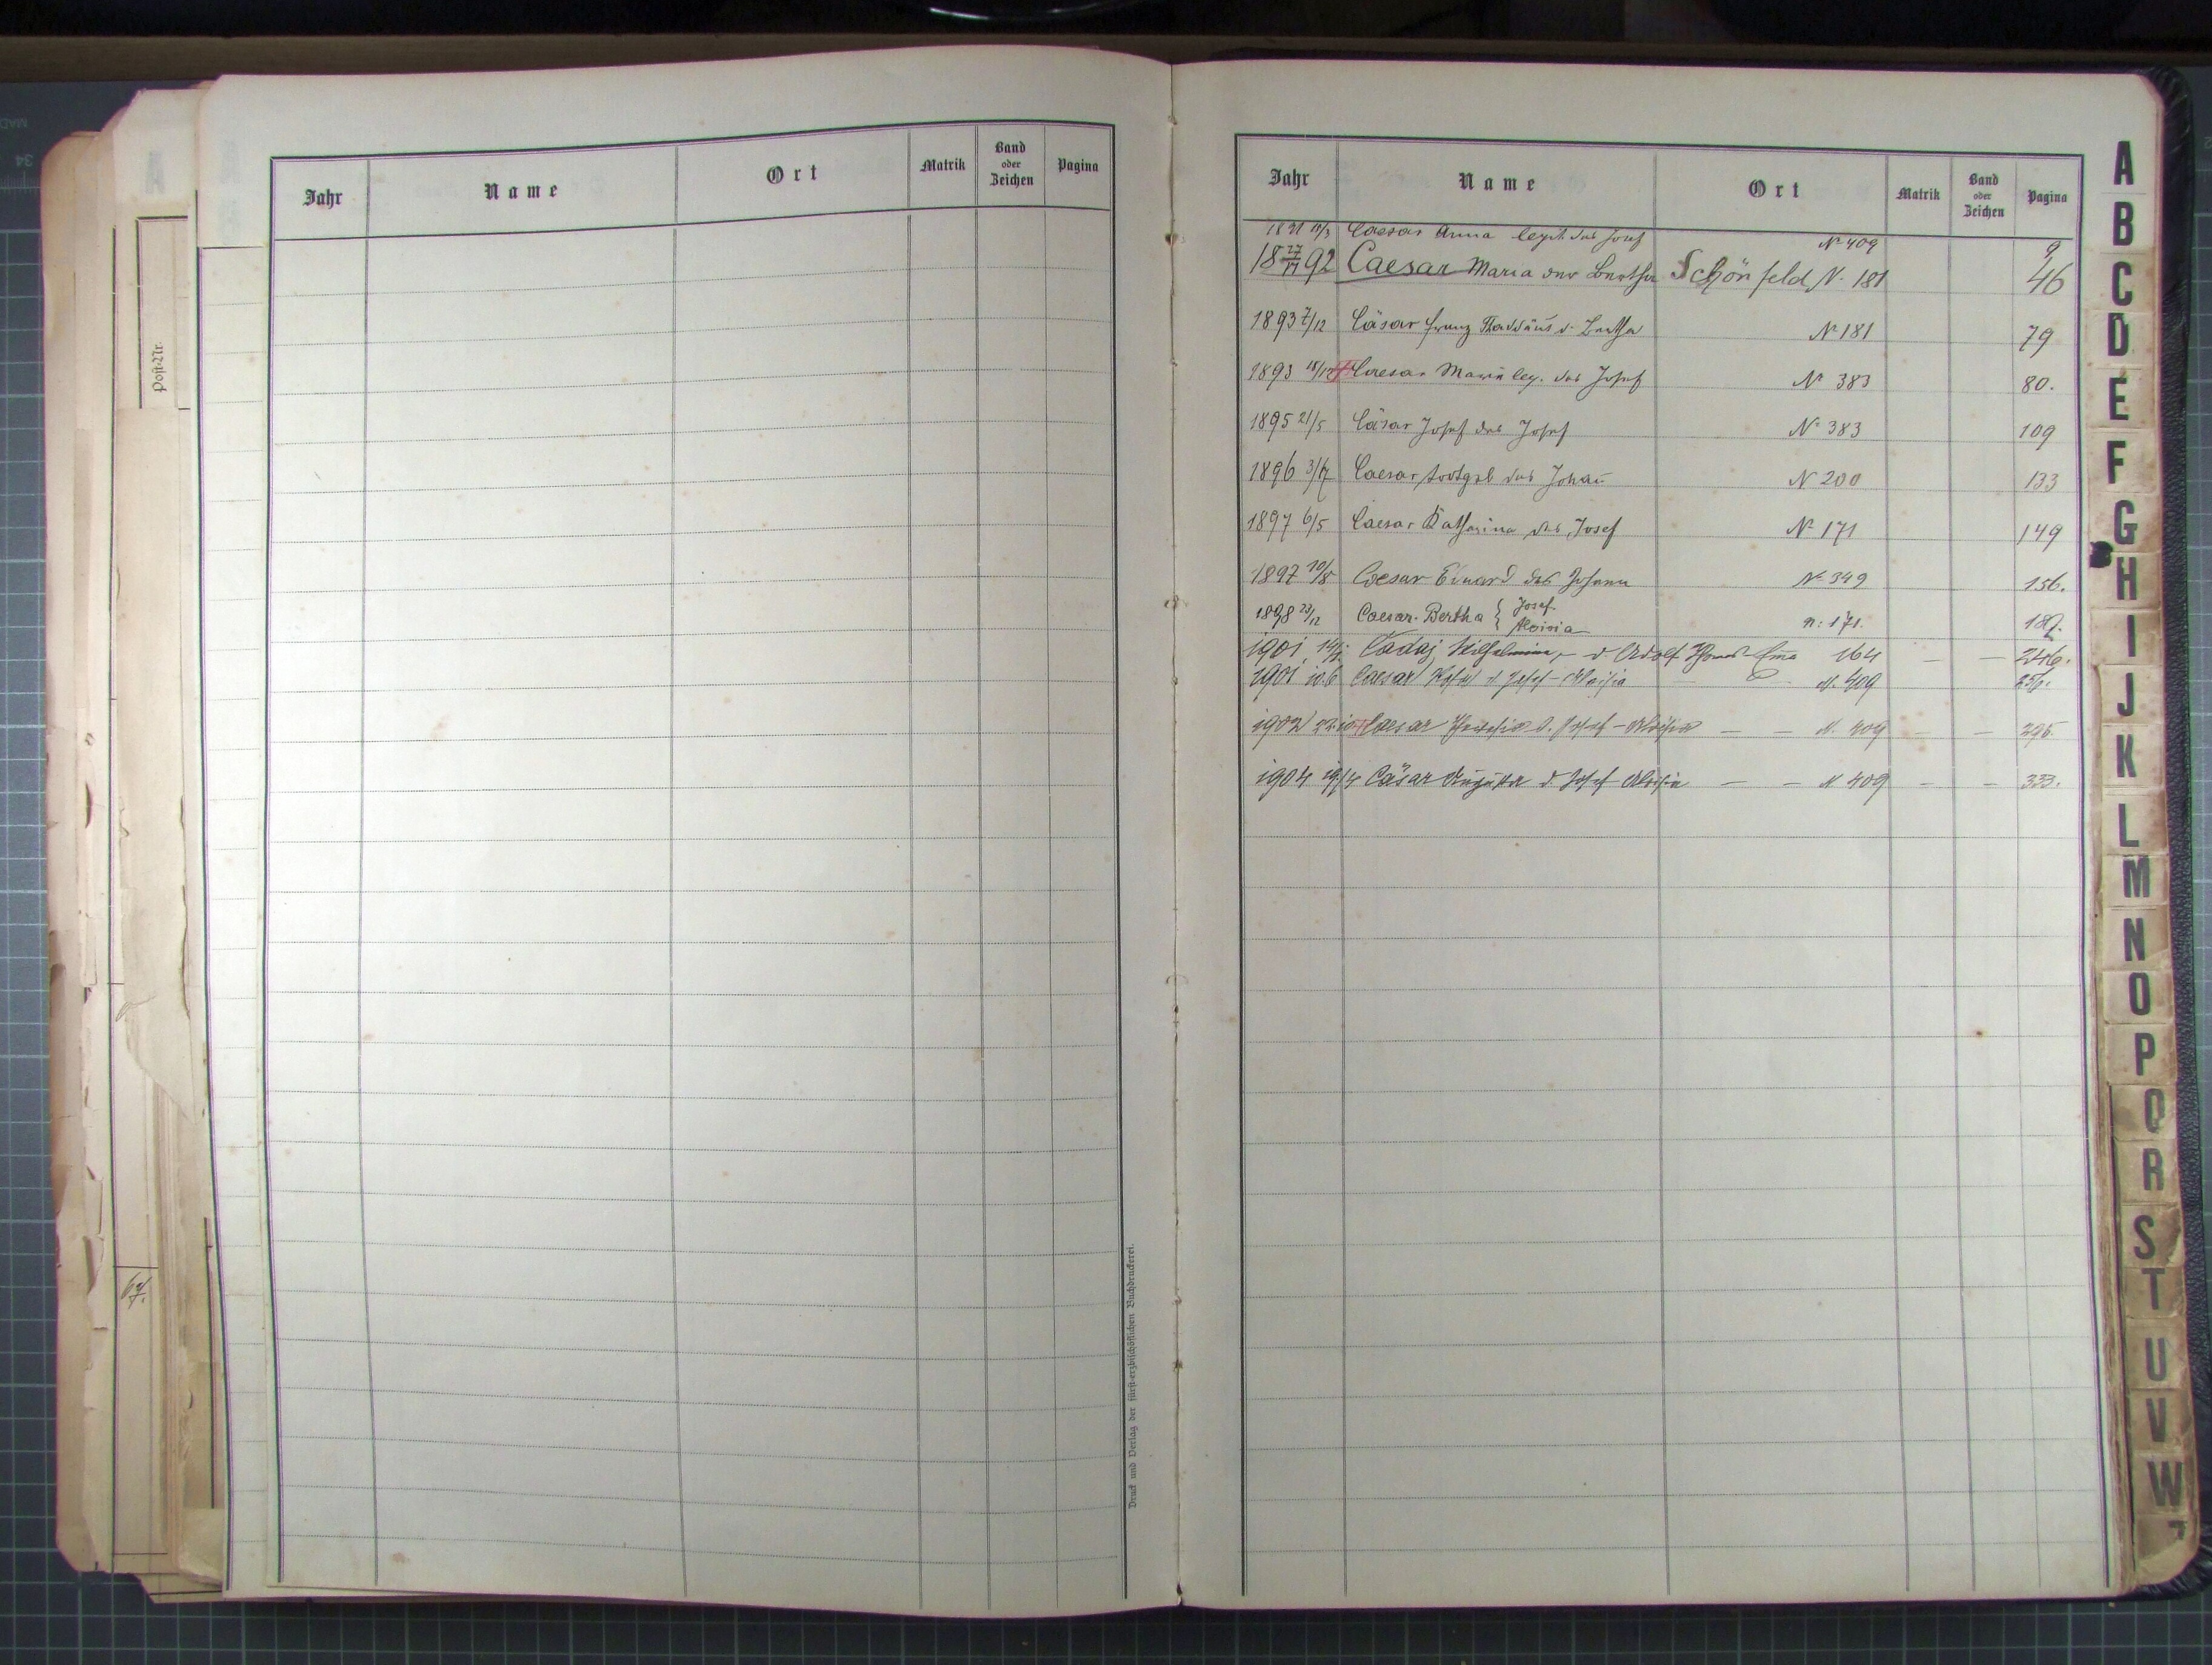 Post-Nr.
67.
Jahr Name Ort Matrik Band oder Zeichen Pagina
Druck und Verlag der fürst-erzbischöflichen Buchdruckerei.
Jahr Name Ort Matrik Band oder Zeichen Pagina
1891 Caesar Anna legit. des Josef No 409 9
18 27/17 92 Caesar Maria der Bertha Schönfeld N. 181 46
1893 7/12 Cäsar Franz Thaddäus d. Bertha No 181 79
1893 Caesar Maria leg. des Josef No 383 80.
1895 21/5 Cäsar Josef des Josef No 383 109
1896 Caesar todtgeb des Johañ N 200 133
1897 6/5 Caesar Katharina des Josef No 171 149
1897 10/8 Caesar Eduard des Johann No 349 156.
1898 23/12 Caesar Bertha { Josef Aloisia n: 171. 187.
1901 Cadaj Wilhelmine, d. Adolf 164 246.
1901 10.6 Caesar d Josef - Aloisia N. 409 257.
1902 + Caesar d. Josef - Aloisia — — N. 409 — — 295
1904 19/4 Cäsar Augusta d Josef Aloisia — — N 409 — — 333.
A
B
C
D
E
F
G
H
I
J
K
L
M
N
O
P
Q
R
S
T
U
V
W